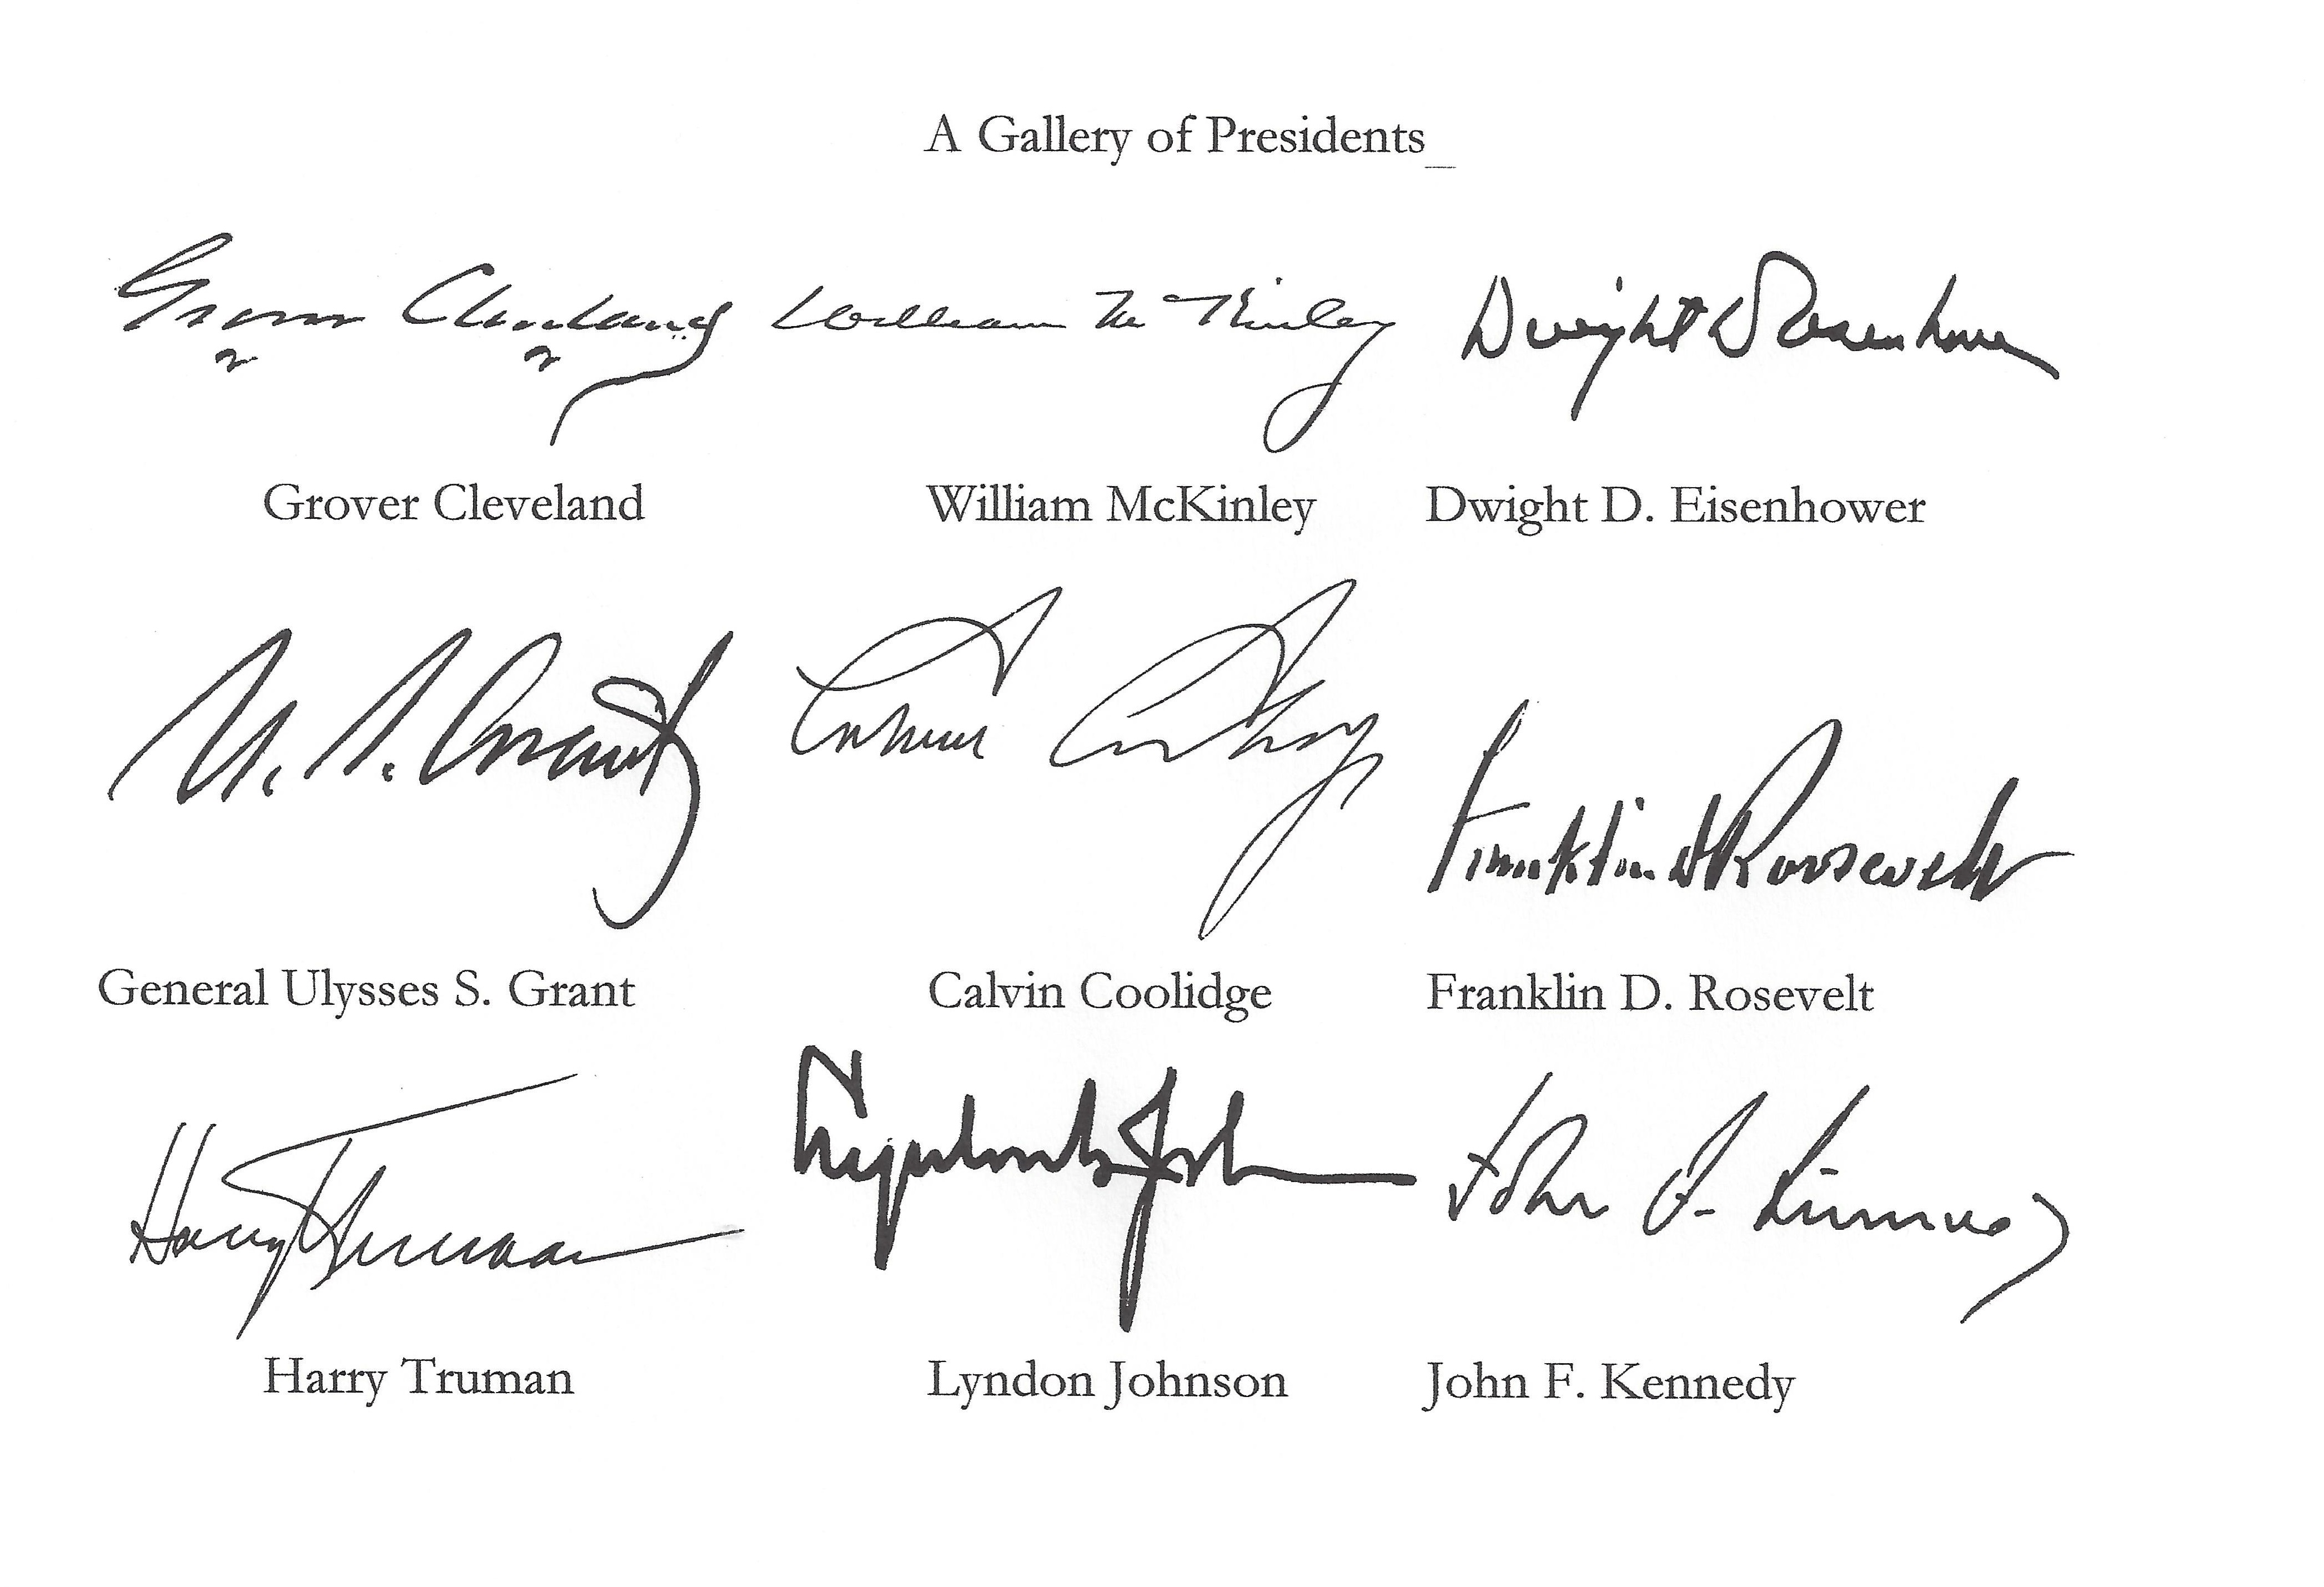 A Gallery of Presidents_
Grover Cleveland William McKinley Dwight D Eisenhower
Grover Cleveland William McKinley Dwight D. Eisenhower
U. S. Grant Calvin Coolidge Franklin D Roosevelt
General Ulysses S. Grant Calvin Coolidge Franklin D. Rosevelt
Harry Truman Lyndon B Johnson John F. Kennedy
Harry Truman Lyndon Johnson John F. Kennedy